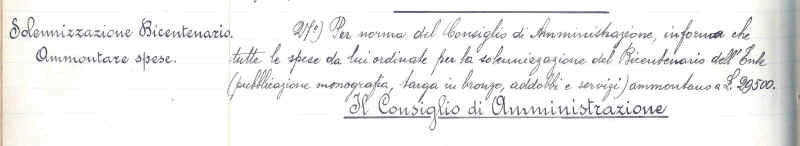 Solennizzazione Bicentenario.
Ammontare spese.
27°) Per norma del Consiglio di Amministrazione, informa che
tutte le spese da lui ordinate per la solennizzazione del Bicentenario dell'Ente
(pubblicazione monografia, targa in bronzo, addobbi e servizi) ammontano a L. 29500.
Il Consiglio di Amministrazione